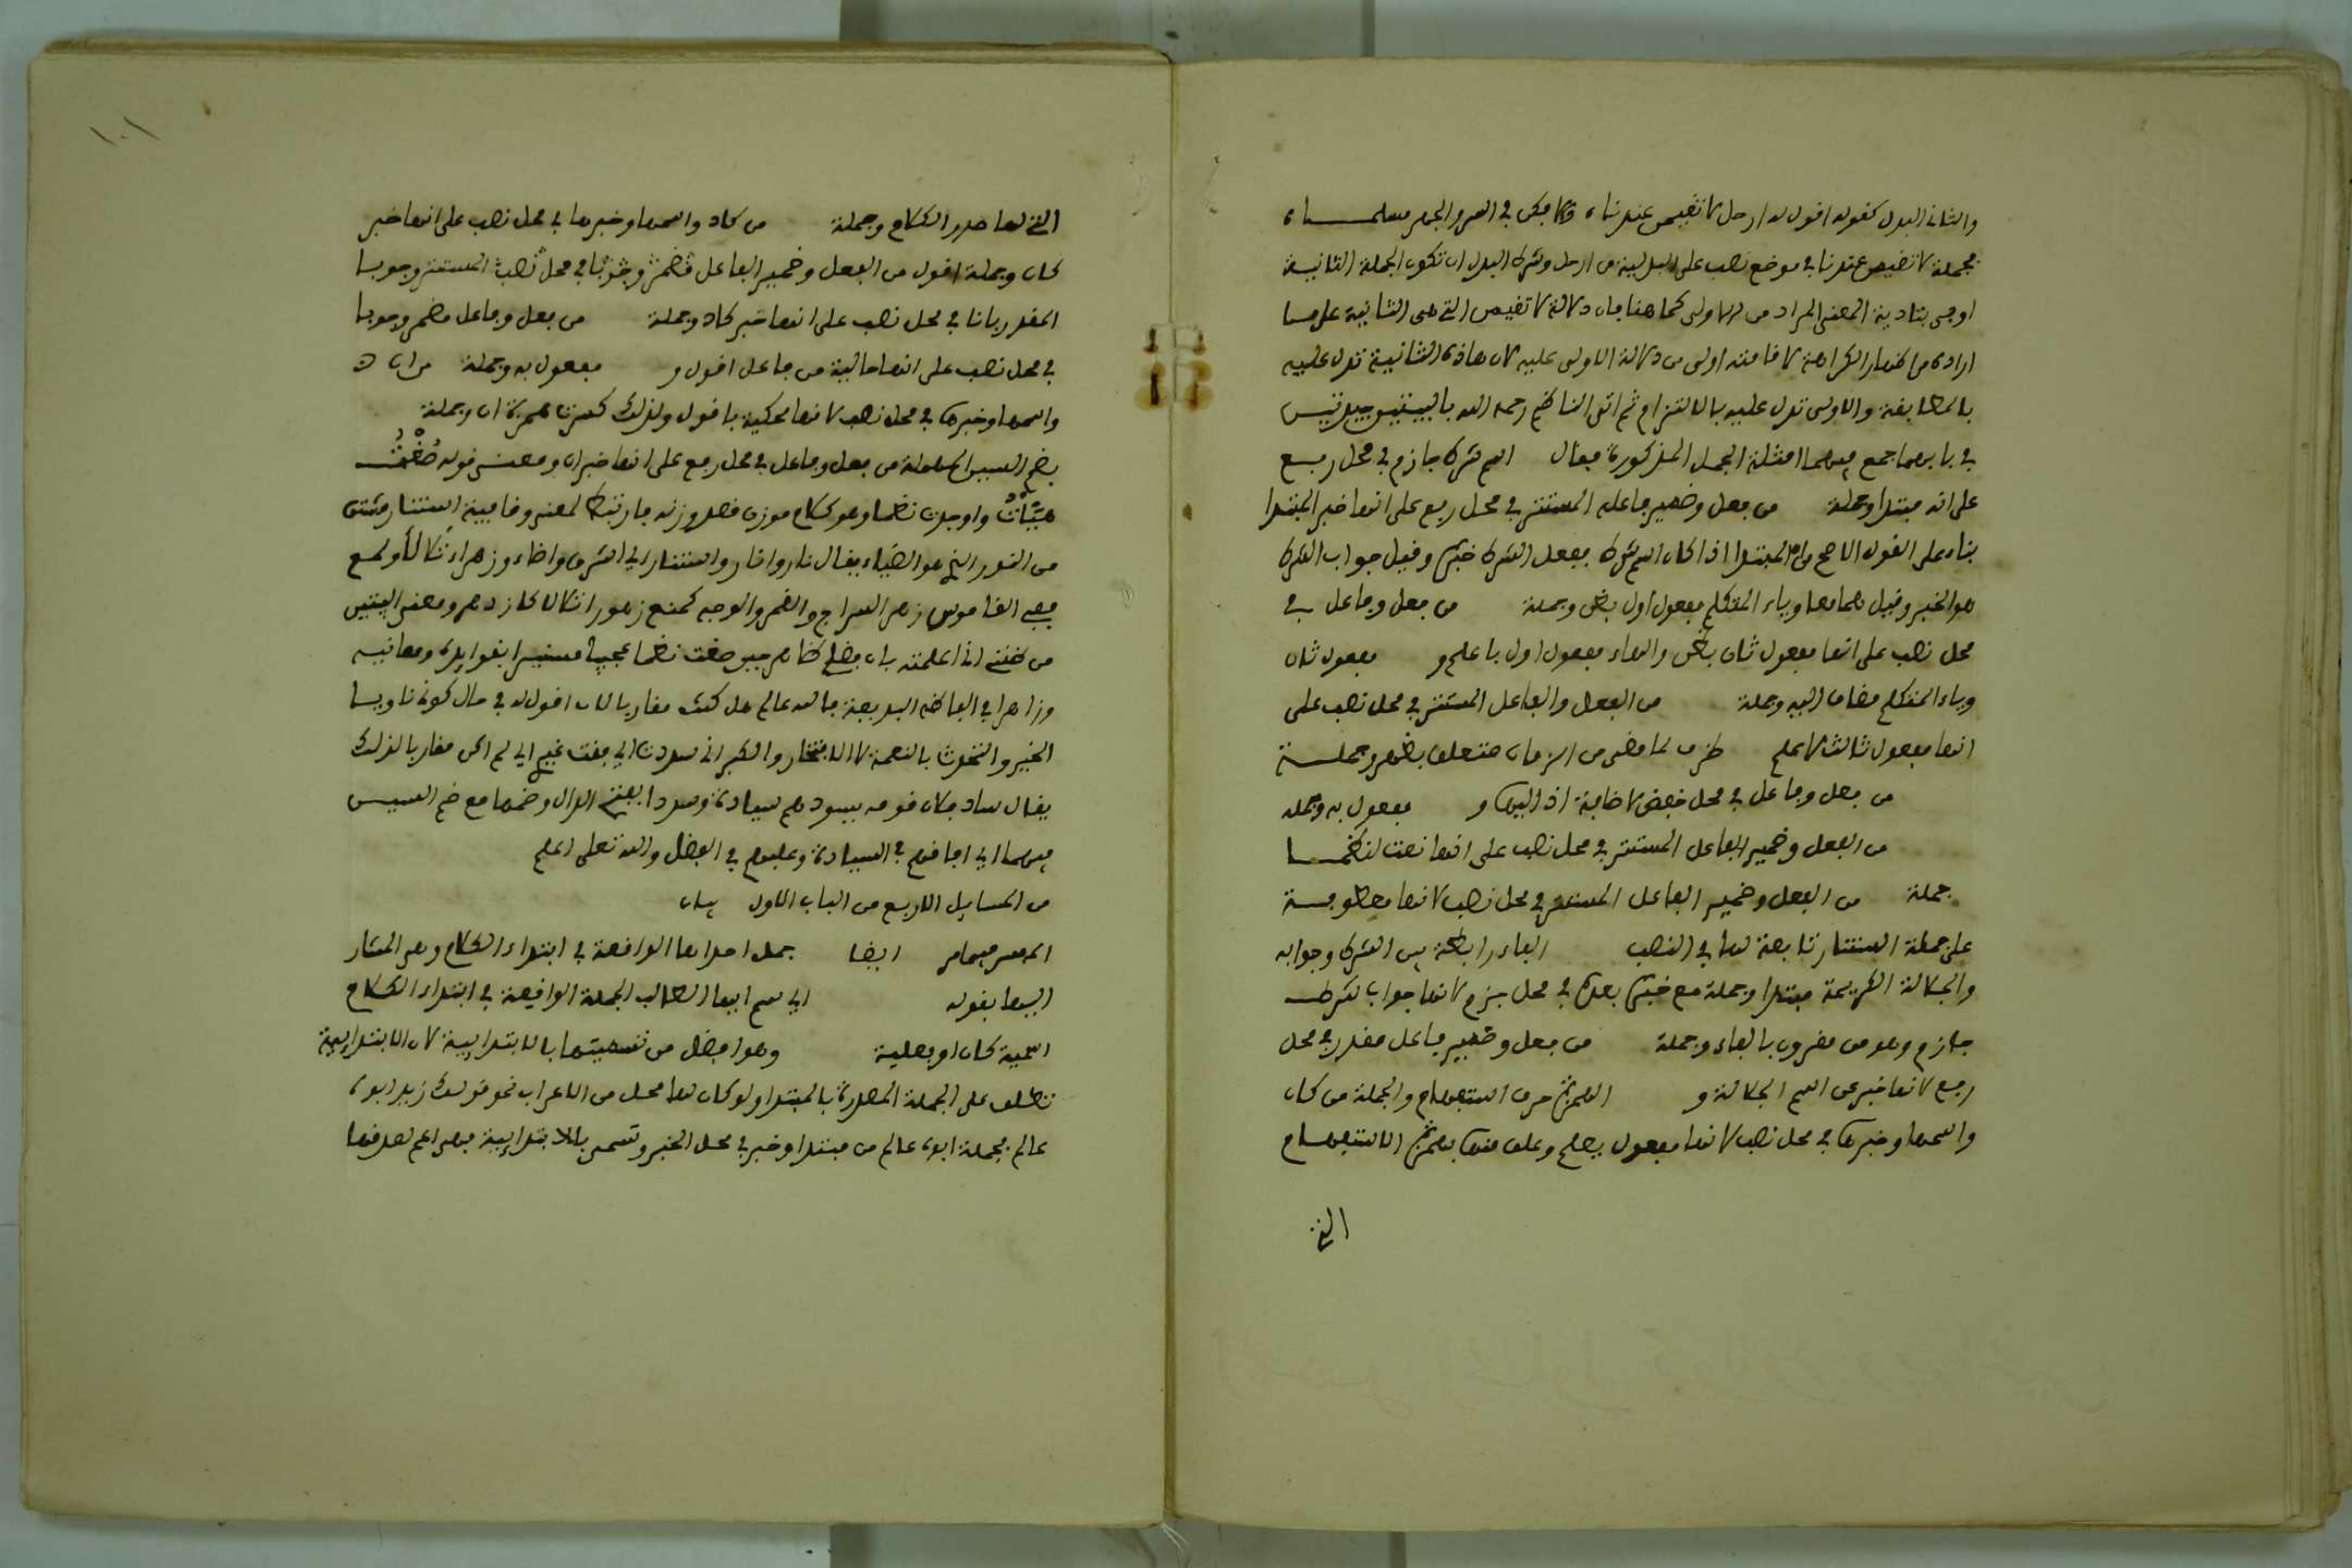 والثاني البدل كقوله اقول له ارحل لا تقيمن عندنا والا فكن في السر والجهر مسلما
فجملة لا تقيمن عندنا في موضع نصب على البدلية من ارحل وشرط البدل ان تكون الجملة الثانية
اوفى بتادية المعنى المراد من الاولى كما هنا فان دلالة لا تقيمن التي هي الثانية على ما
اراده من اظهار الكراهة لاقامته اولى من دلالة الاولى عليه لان هاذه الثانية تدل عليه
بالمطابقة والاولى تدل عليه بالالتزام ثم اتى الناظم رحمه الله ببيتين
في بابهما جمع فيهما امثلة الجمل المذكورة فقال اسم شرط جازم في محل رفع
على انه مبتدا وجملة من فعل وضمير فاعله المستتر في محل رفع على انها خبر المبتدا
بناء على القول الاصح من ان المبتدا اذا كان اسم شرط ففعل الشرط خبره وقيل جواب الشرط
هو الخبر وقيل هما معا وياء المتكلم مفعول اول بظن وجملة من فعل وفاعل في
محل نصب على انها مفعول ثان بظن والهاء مفعول اول باعلم و مفعول ثان
وياء المتكلم مضاف اليه وجملة من الفعل والفاعل المستتر في محل نصب على
انها مفعول ثالث لاعلم ظرف لما مضى من الزمان متعلق وجملة
من فعل وفاعل في محل خفض لاضافة اذ اليها و مفعول به وجملة
من الفعل وضمير الفاعل المستتر في محل نصب على انها نعت لنظما
جملة من الفعل وضمير الفاعل المستتر في محل نصب لانها معطوفة
على جملة استنار تابعة لها في النصب الفاء رابطة بين الشرط وجوابه
والجلالة الكريمة مبتدا وجملة مع خبره بعده في محل جزم لانها جواب لشرط
جازم وهو من مقرون بالفاء وجملة من فعل وضمير فاعل مقدر في محل
رفع لانها خبر عن اسم الجلالة و الهمزة حرف استفهام والجملة من كان
واسمها وخبرها في محل نصب لانها مفعول يعلم وعلق عنها بهمزة الاستفهام
التي
١٠١
التي لها صدر الكلام وجملة من كاد واسمها وخبرها في محل نصب على انها خبر
كان وجملة اقول من الفعل وضمير الفاعل المستتر وجوبا
المقدر بانا في محل نصب على انها خبر كاد وجملة من فعل وفاعل مضمر وجوبا
في محل نصب على انها حالية من فاعل اقول و مفعول به وجملة من ان
واسمها وخبرها في محل نصب لانها محكية باقول ولذلك كسرت همزة ان وجملة
بضم السين المهملة من فعل وفاعل في محل رفع على انها خبر ان ومعنى قوله صغت
هيئات واوجدت نظما وهو كلام موزون قصد وزنه فارتبط لمعنى وقافية استنار مشتق
من النور الذي هو الضياء يقال نار وانار واستنار اي اشرق واضاء وزهر اي تلالا ولمع
ففي القاموس زهر السراج والقمر والوجه كمنع زهورا تلالا كازدهر ومعنى البيتين
من ظنني اذا اعلمته بان فضلي ظاهر حين صغت نظما عجيبا مستنيرا بفوايده ومعانيه
وزاهرا في الفاظه البديعة فالله عالم هل كنت مقاربا لان اقول له في حال كوني ناويا
الخير والتحدث بالنعمة لا الافتخار والكبر اني سدت اي فقت غيري اي لم اكن مقاربا لذلك
يقال ساد فلان قومه يسودهم سيادة وسوددا بفتح الدال وضمها مع ضم السين
فيهما اي فاقهم في السيادة وعليهم في الفضل والله تعلى اعلم
من المسايل الاربع من الباب الاول بيان
ايضا جمل احداها الواقعة في ابتداء الكلام وهي المشار
اليها بقوله اي سم ايها الطالب الجملة الواقعة في ابتداء الكلام
اسمية كان او فعلية وهو افضل من تسميتها بالابتدايية لان الابتدايية
تطلق على الجملة المصدرة بالمبتدا ولو كان لها محل من الاعراب نحو قولك زيد ابوه
عالم فجملة ابوه عالم من مبتدا وخبر في محل الخبر وتسمى بالابتدايية فهي اعم لصدقها